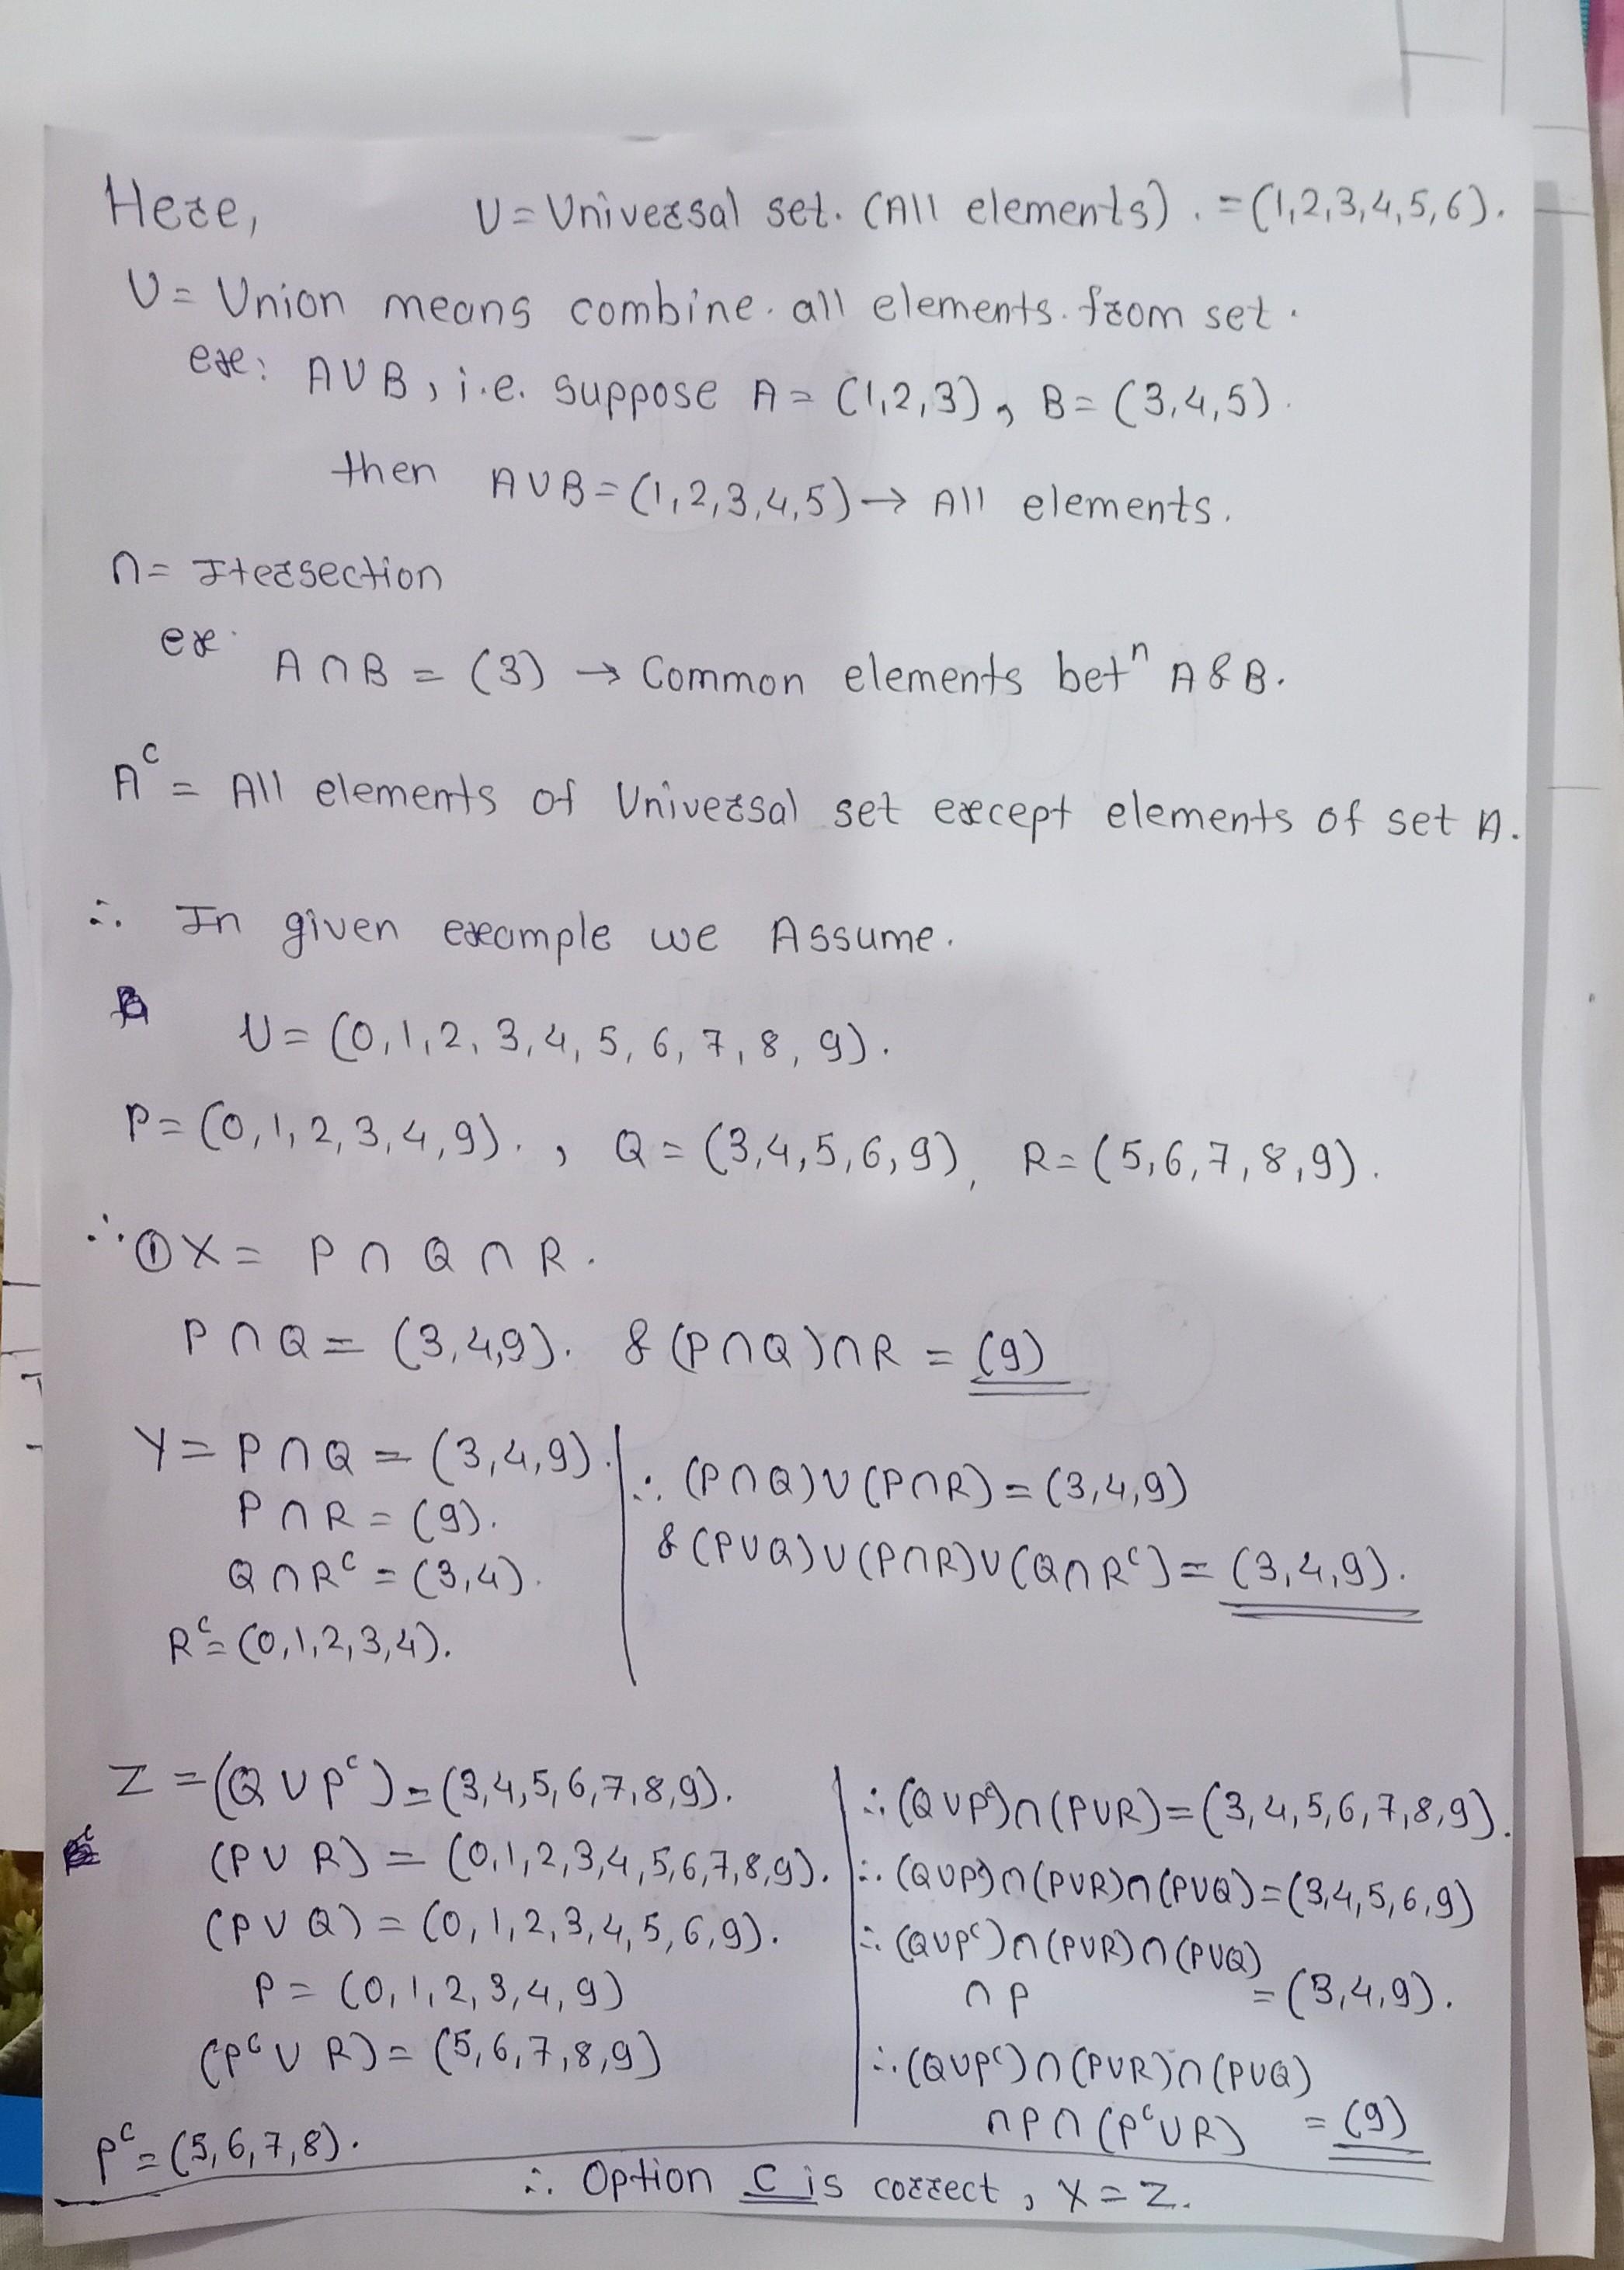 Here,
U = Universal set. (All elements). = (1,2,3,4,5,6).
U = Union means combine. all elements. from set.
ex: A U B, i.e. suppose A = (1,2,3), B = (3,4,5).
then A U B = (1,2,3,4,5) → All elements.
∩ = Itersection
ex. A ∩ B = (3) → Common elements betⁿ A & B.
Aᶜ = All elements of Universal set except elements of set A.
∴ In given example we Assume.
U = (0,1,2,3,4,5,6,7,8,9).
P = (0,1,2,3,4,9)., Q = (3,4,5,6,9), R = (5,6,7,8,9).
∴ ① X = P ∩ Q ∩ R.
P ∩ Q = (3,4,9). & (P ∩ Q) ∩ R = (9)
Y = P ∩ Q = (3,4,9).
P ∩ R = (9).
Q ∩ Rᶜ = (3,4).
Rᶜ = (0,1,2,3,4).
∴ (P ∩ Q) U (P ∩ R) = (3,4,9)
& (P U Q) U (P ∩ R) U (Q ∩ Rᶜ) = (3,4,9).
Z = (Q U Pᶜ) = (3,4,5,6,7,8,9).
(P U R) = (0,1,2,3,4,5,6,7,8,9).
(P U Q) = (0,1,2,3,4,5,6,9).
P = (0,1,2,3,4,9)
(Pᶜ U R) = (5,6,7,8,9)
Pᶜ = (5,6,7,8).
∴ (Q U Pᶜ) ∩ (P U R) = (3,4,5,6,7,8,9).
∴ (Q U Pᶜ) ∩ (P U R) ∩ (P U Q) = (3,4,5,6,9)
∴ (Q U Pᶜ) ∩ (P U R) ∩ (P U Q)
∩ P = (3,4,9).
∴ (Q U Pᶜ) ∩ (P U R) ∩ (P U Q)
∩ P ∩ (Pᶜ U R) = (9)
∴ Option C is correct, X = Z.